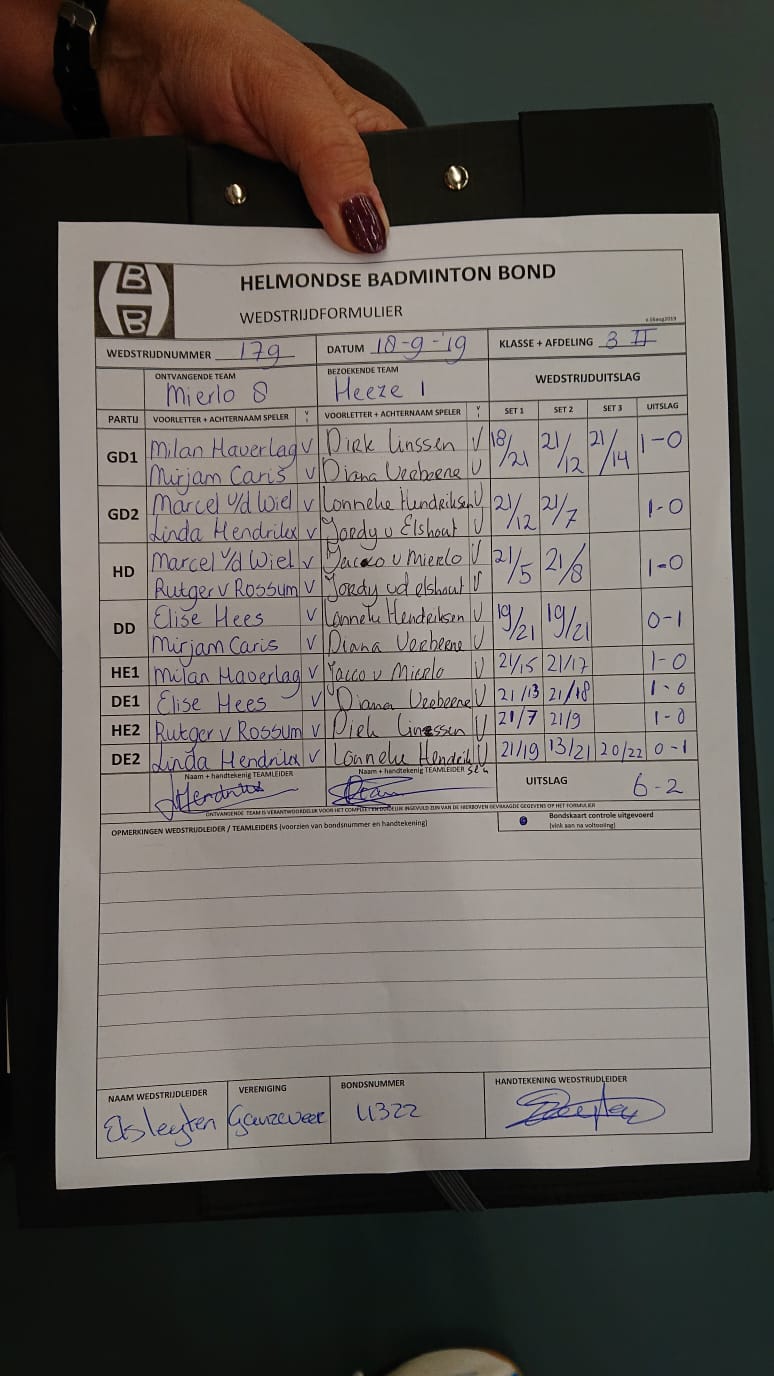 HELMONDSE BADMINTON BOND
WEDSTRIJDFORMULIER
v.16aug2019
WEDSTRIJDNUMMER 179 DATUM 18-9-'19 KLASSE + AFDELING 3 II
ONTVANGENDE TEAM BEZOEKENDE TEAM WEDSTRIJDUITSLAG
Mierlo 8 Heeze 1
PARTIJ VOORLETTER + ACHTERNAAM SPELER V VOORLETTER + ACHTERNAAM SPELER V SET 1 SET 2 SET 3 UITSLAG
GD1 Milan Haverlag v Dirk Linssen V 18/21 21/12 21/14 1-0
Mirjam Caris v Diana Verbeene V
GD2 Marcel v/d Wiel v Lonneke Hendriksen V 21/12 21/7 1-0
Linda Hendrikx v Jordy v Elshout V
HD Marcel v/d Wiel v Jacco v Mierlo V 21/5 21/8 1-0
Rutger v Rossum v Jordy vd elshout V
DD Elise Hees v Lonneke Hendriksen V 19/21 19/21 0-1
Mirjam Caris v Diana Verbeene V
HE1 Milan Haverlag v Jacco v Mierlo V 21/15 21/17 1-0
DE1 Elise Hees v Diana Verbeene V 21/13 21/18 1-0
HE2 Rutger v Rossum v Dirk Linssen V 21/7 21/9 1-0
DE2 Linda Hendrikx v Lonneke Hendrik V 21/19 13/21 20/22 0-1
sen
Naam + handtekenig TEAMLEIDER Naam + handtekenig TEAMLEIDER UITSLAG 6-2
Hendrikx
ONTVANGENDE TEAM IS VERANTWOORDELIJK VOOR HET COMPLEET EN DUIDELIJK INGEVULD ZIJN VAN DE HIERBOVEN GEVRAAGDE GEGEVENS OP HET FORMULIER
OPMERKINGEN WEDSTRIJDLEIDER / TEAMLEIDERS (voorzien van bondsnummer en handtekening)
Bondskaart controle uitgevoerd
(vink aan na voltooiing)
NAAM WEDSTRIJDLEIDER VERENIGING BONDSNUMMER HANDTEKENING WEDSTRIJDLEIDER
Ganzeveer 4322